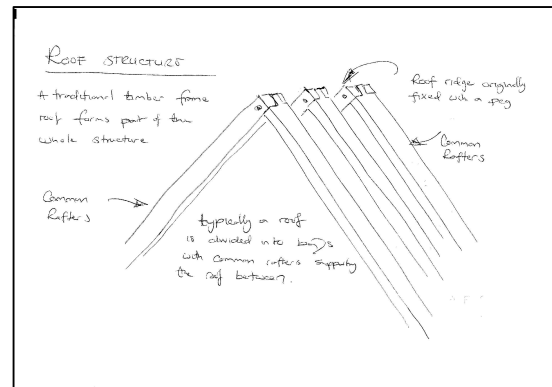 ROOF STRUCTURE
A traditional timber frame
roof forms part of the
whole structure
Roof ridge originally
fixed with a peg
Common
Rafters
Common
Rafters
typically a roof
is divided into bays
with common rafters supporting
the roof between.